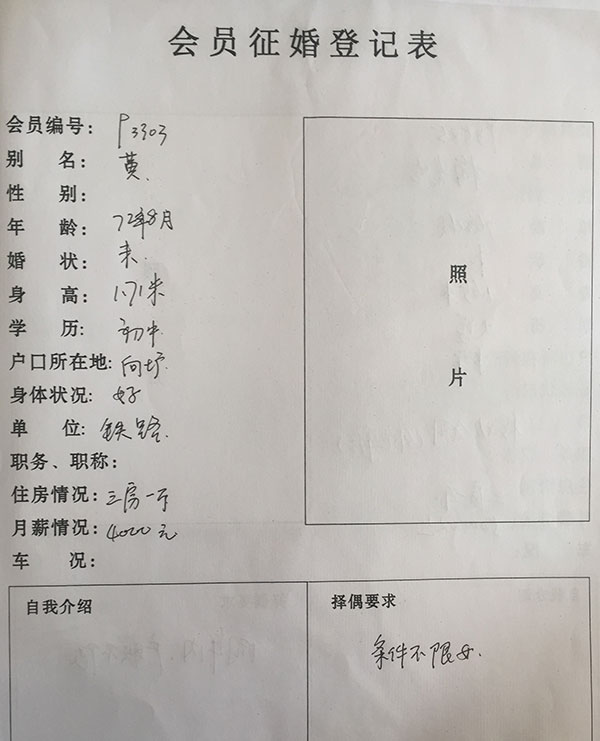 会员征婚登记表
会员编号：P3303
别 名：黄
性 别：
年 龄：72年8月
婚 状：未
身 高：1.71米
学 历：初中
户口所在地：向圩
身体状况：好
单 位：铁路
职务、职称：
住房情况：三房一厅
月薪情况：4000元
车 况：
照
片
自我介绍
择偶要求
条件不限女